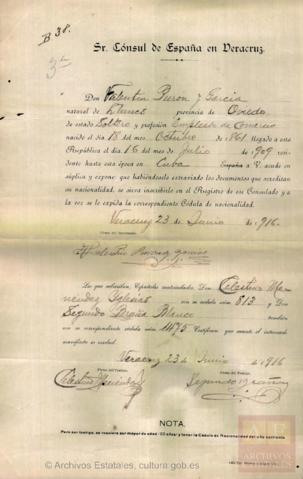 B 38.
Sr. Cónsul de España en Veracruz.
Don Valentin Pieron y Garcia
natural de Llanes provincia de Oviedo
de estado Soltero y profesión Empleado de Comercio
nacido el día 18 del mes Octubre de 1861 llegado a esta
República el día 16 del mes de Julio de 1909 vi-
niendo hasta esta época en Cuba España a V. acude en
súplica y expone que habiéndosele extraviado los documentos que acreditan
su nacionalidad, se sirva inscribirle en el Registro de ese Consulado y a
la vez se le expida la correspondiente Cédula de nacionalidad.
Veracruz 23 de Junio de 1916.
Firma del Interesado
Valentin
Los que subscriben, Españoles matriculados, Don Celestino Me-
nendez Yglesias con su cédula núm. 813 y Don
Segundo Blanco también
con su correspondiente cédula núm. 1475 Certifican que cuanto el interesado
manifiesta es verdad.
Veracruz 23 de Junio de 1916
Firma del Testigo Firma del Testigo
Celestino Menendez Segundo
NOTA.
Para ser testigo, se requiere ser mayor de edad y tener la Cédula de Nacionalidad del año corriente
© Archivos Estatales, cultura.gob.es